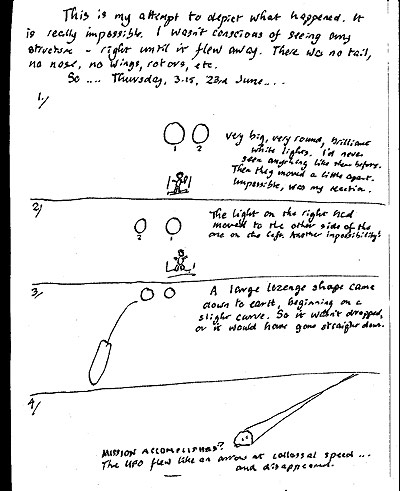 This is my attempt to depict what happened. It
is really impossible. I wasn't conscious of seeing any
structure - right until it flew away. There was no tail,
no nose, no wings, rotors, etc.
So .... Thursday, 3.15, 23rd June....
1/
1 2
very big, very round, brilliant
white lights. I'd never
seen anything like them before.
Then they moved a little apart.
Impossible, was my reaction.
2/
2 1
The light on the right had
moved to the other side of the
one on the left. Another impossibility!
3/
A large lozenge shape came
down to earth, beginning on a
slight curve. So it wasn't dropped,
or it would have gone straight down.
4/
MISSION ACCOMPLISHED?
The UFO flew like an arrow at collosal speed...
and disappeared.